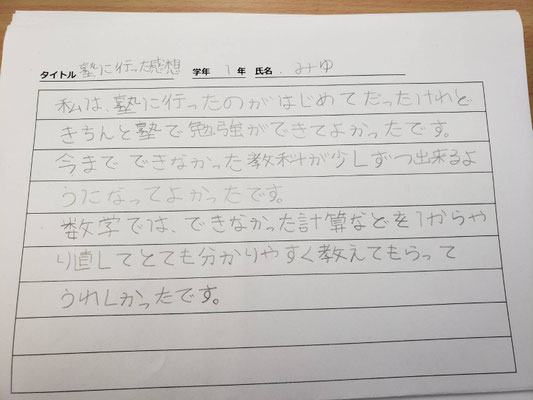 タイトル 塾に行った感想 学年 1 年 氏名 みゆ
私は、塾に行ったのがはじめてだったけれど
きちんと塾で勉強ができてよかったです。
今までできなかった教科が少しずつ出来るよ
うになってよかったです。
数学では、できなかった計算などを1からや
り直してとても分かりやすく教えてもらって
うれしかったです。